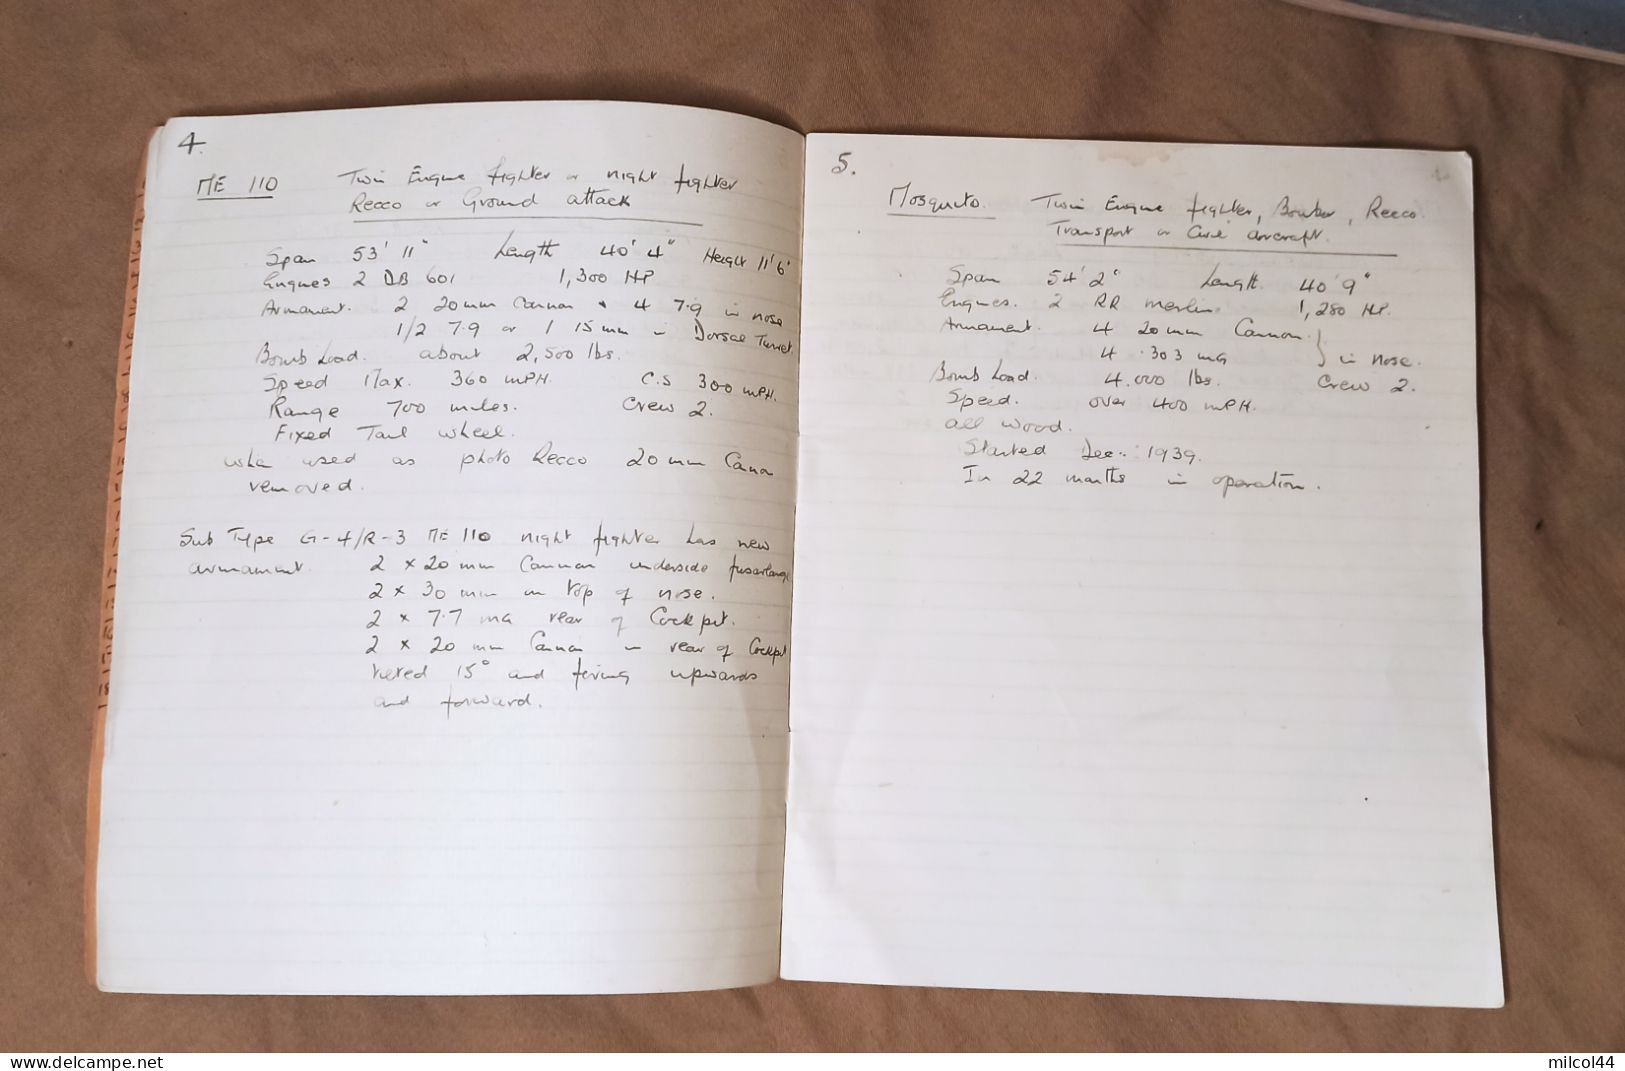 4.
ME 110 Twin Engine fighter or night fighter
Recco or Ground attack
Span 53' 11" Length 40' 4" Height 11' 6"
Engines 2 DB 601 1,300 HP
Armament. 2 20mm Cannon + 4 7.9 in nose
1/2 7.9 or 1 15mm in Dorsal Turret.
Bomb Load. about 2,500 lbs.
Speed Max. 360 MPH. C.S 300 MPH.
Range 700 miles. Crew 2.
Fixed Tail wheel.
when used as photo Recco 20mm Canon
removed.
Sub Type G-4/R-3 ME 110 night fighter has new
armament. 2 x 20 mm Cannon underside fuselange
2 x 30 mm in top of nose.
2 x 7.7 MG rear of Cockpit.
2 x 20 mm Cannon in rear of Cockpit
tilted 15° and firing upwards
and forward.
5.
Mosquito. Twin Engine fighter, Bomber, Recco.
Transport or Civil aircraft.
Span 54' 2" Length. 40' 9"
Engines. 2 RR Merlin. 1,280 HP.
Armament. 4 20mm Cannon.
4 .303 MG } in nose.
Bomb Load. 4.000 lbs. Crew 2.
Speed. over 400 MPH.
all wood.
Started Dec. 1939.
In 22 months in operation.
www.delcampe.net
milcol44